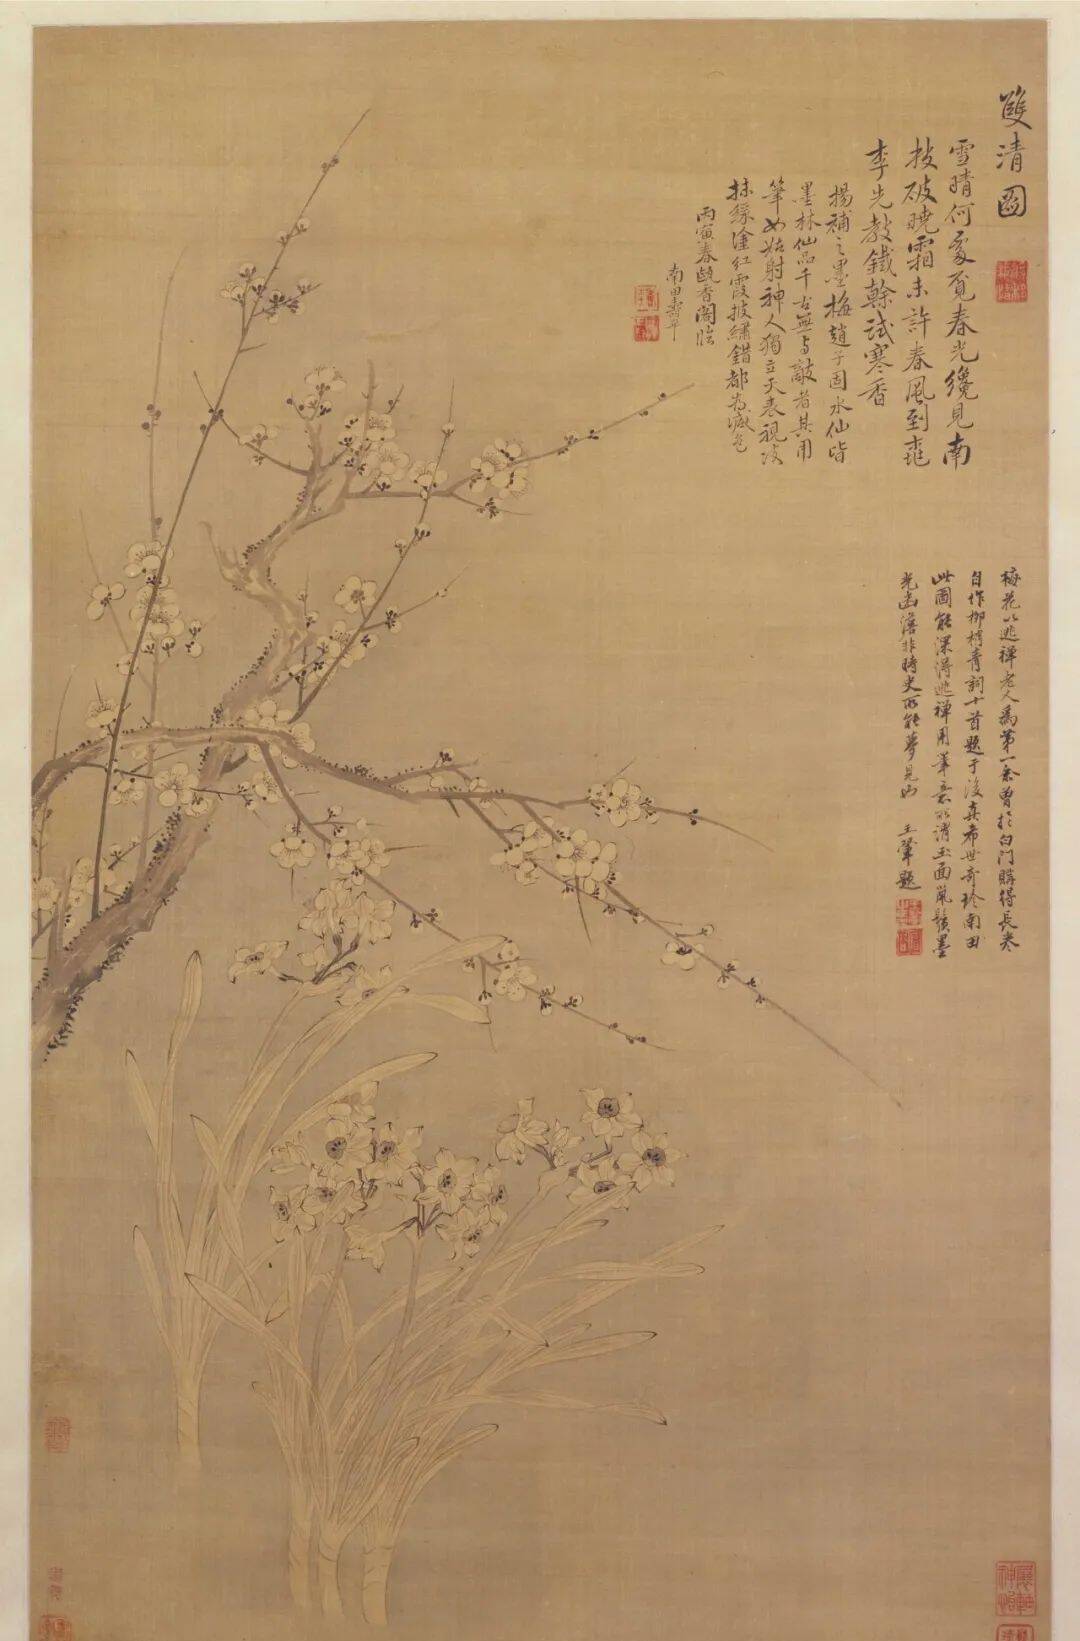 雙清圖
雪晴何處覓春光纔見南
枝破曉霜未許春風到桃
李先教鐵榦試寒香
揚補之墨梅趙子固水仙皆
墨林仙品千古無与敵者其用
筆如姑射神人獨立天表視凌
抹綠塗紅霞披繡錯都為
丙寅春甌香閣臨
南田壽平
梅花以逃禪老人為第一余曾於白門購得長卷
自作柳梢青詞十首題于後真希世奇珍南田
此圖能深得逃禪用筆意所謂玉面鼠鬚墨
光幽澹非時史所能夢見也
王翬題